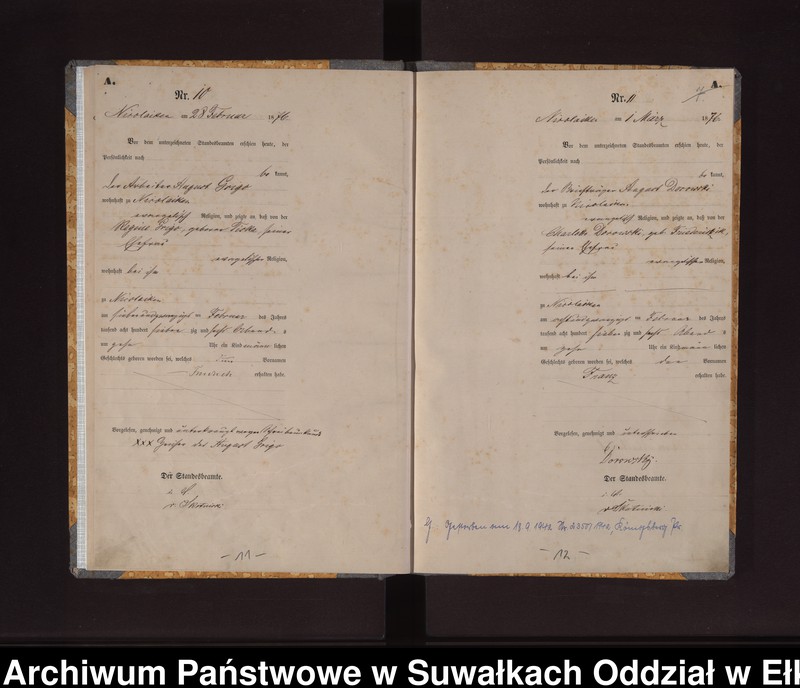 A.
Nr. 10
Nicolaiken am 28 Februar 1876
Vor dem unterzeichneten Standesbeamten erschien heute, der
Persönlichkeit nach
be kannt,
der Arbeiter August Grigo
wohnhaft zu Nicolaiken
evangelisch Religion, und zeigte an, daß von der
Regine Grigo, geborene seiner
Ehefrau
evangelischer Religion,
wohnhaft bei ihm
zu Nicolaiken
am siebenundzwanzigsten Februar des Jahres
tausend acht hundert sieben zig und sechs Abends
um zehn Uhr ein Kind männ lichen
Geschlechts geboren worden sei, welches den Vornamen
Friedrich erhalten habe.
Vorgelesen, genehmigt und
XXX Zeichen des August Grigo
Der Standesbeamte.
- 11 -
A.
Nr. 11
Nicolaiken am 1 März 1876
Vor dem unterzeichneten Standesbeamten erschien heute, der
Persönlichkeit nach
be kannt,
der August Dorowski
wohnhaft zu Nicolaiken
evangelisch Religion, und zeigte an, daß von der
Charlotte Dorowski, geb.
seiner Ehefrau
evangelischer Religion,
wohnhaft bei ihm
zu Nicolaiken
am achtundzwanzigsten Februar des Jahres
tausend acht hundert sieben zig und sechs Abends
um zehn Uhr ein Kind männ lichen
Geschlechts geboren worden sei, welches den Vornamen
Franz erhalten habe.
Vorgelesen, genehmigt und unterschrieben
Dorowski
Der Standesbeamte.
Gestorben am 1942 Nr. 1942, Königsberg Pr.
- 12 -
Archiwum Państwowe w Suwałkach Oddział w Ełk